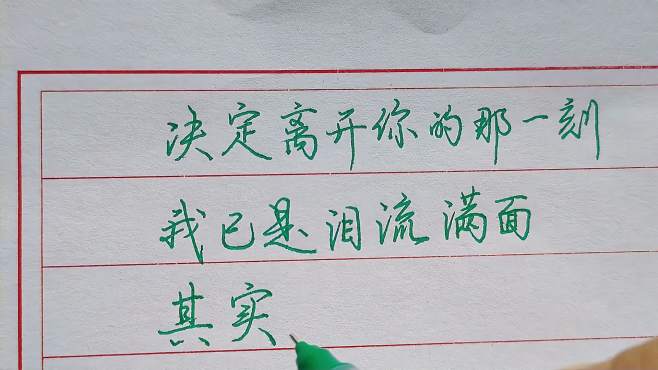 决定离开你的那一刻
我已是泪流满面
其实